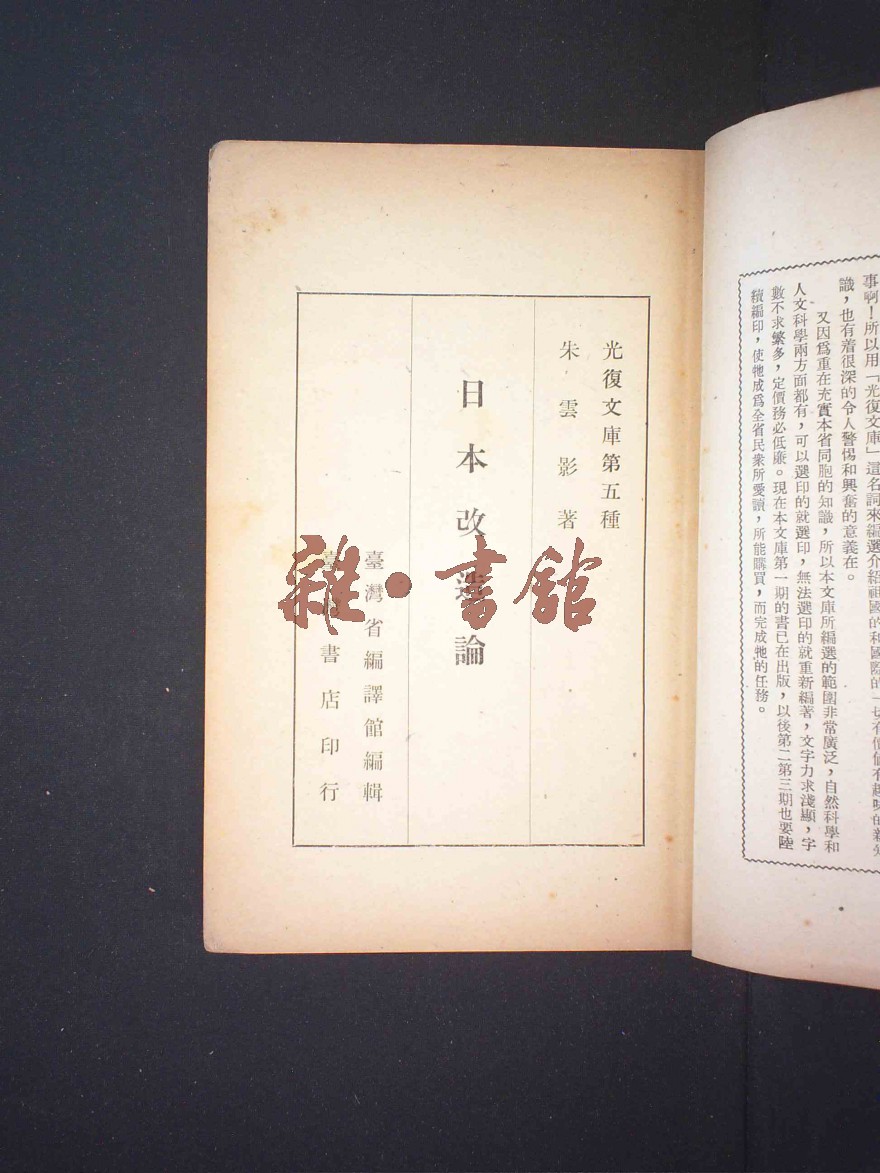 事啊！所以用「光復文庫」這名詞來編選介紹祖國的和國際的一切有價值有趣味的新知
識，也有着很深的令人警惕和興奮的意義在。
又因爲重在充實本省同胞的知識，所以本文庫所編選的範圍非常廣泛，自然科學和
人文科學兩方面都有，可以選印的就選印，無法選印的就重新編著，文字力求淺顯，字
數不求繁多，定價務必低廉。現在本文庫第一期的書已在出版，以後第二第三期也要陸
續編印，使牠成爲全省民衆所愛讀，所能購買，而完成牠的任務。
光復文庫第五種
朱雲影著
日本改造論
臺灣省編譯館編輯
臺書店印行
雜·書館